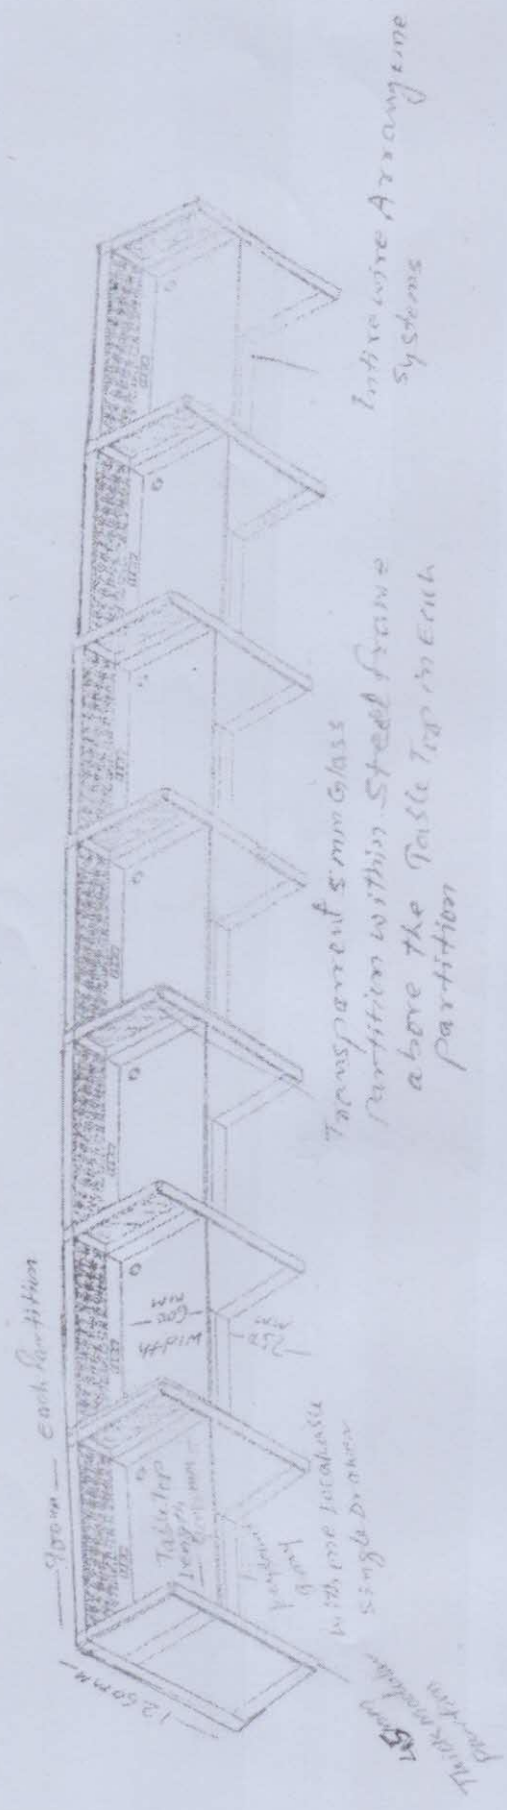 900mm
Each Partition
1250mm
Table Top
Length
width
600
mm
with one localable
single Drawer
Thick modular
Transparent 5 mm Glass
Partition within Steel frame
above the Table Top in Each
Partition
Entire wire Arrangeme
systems